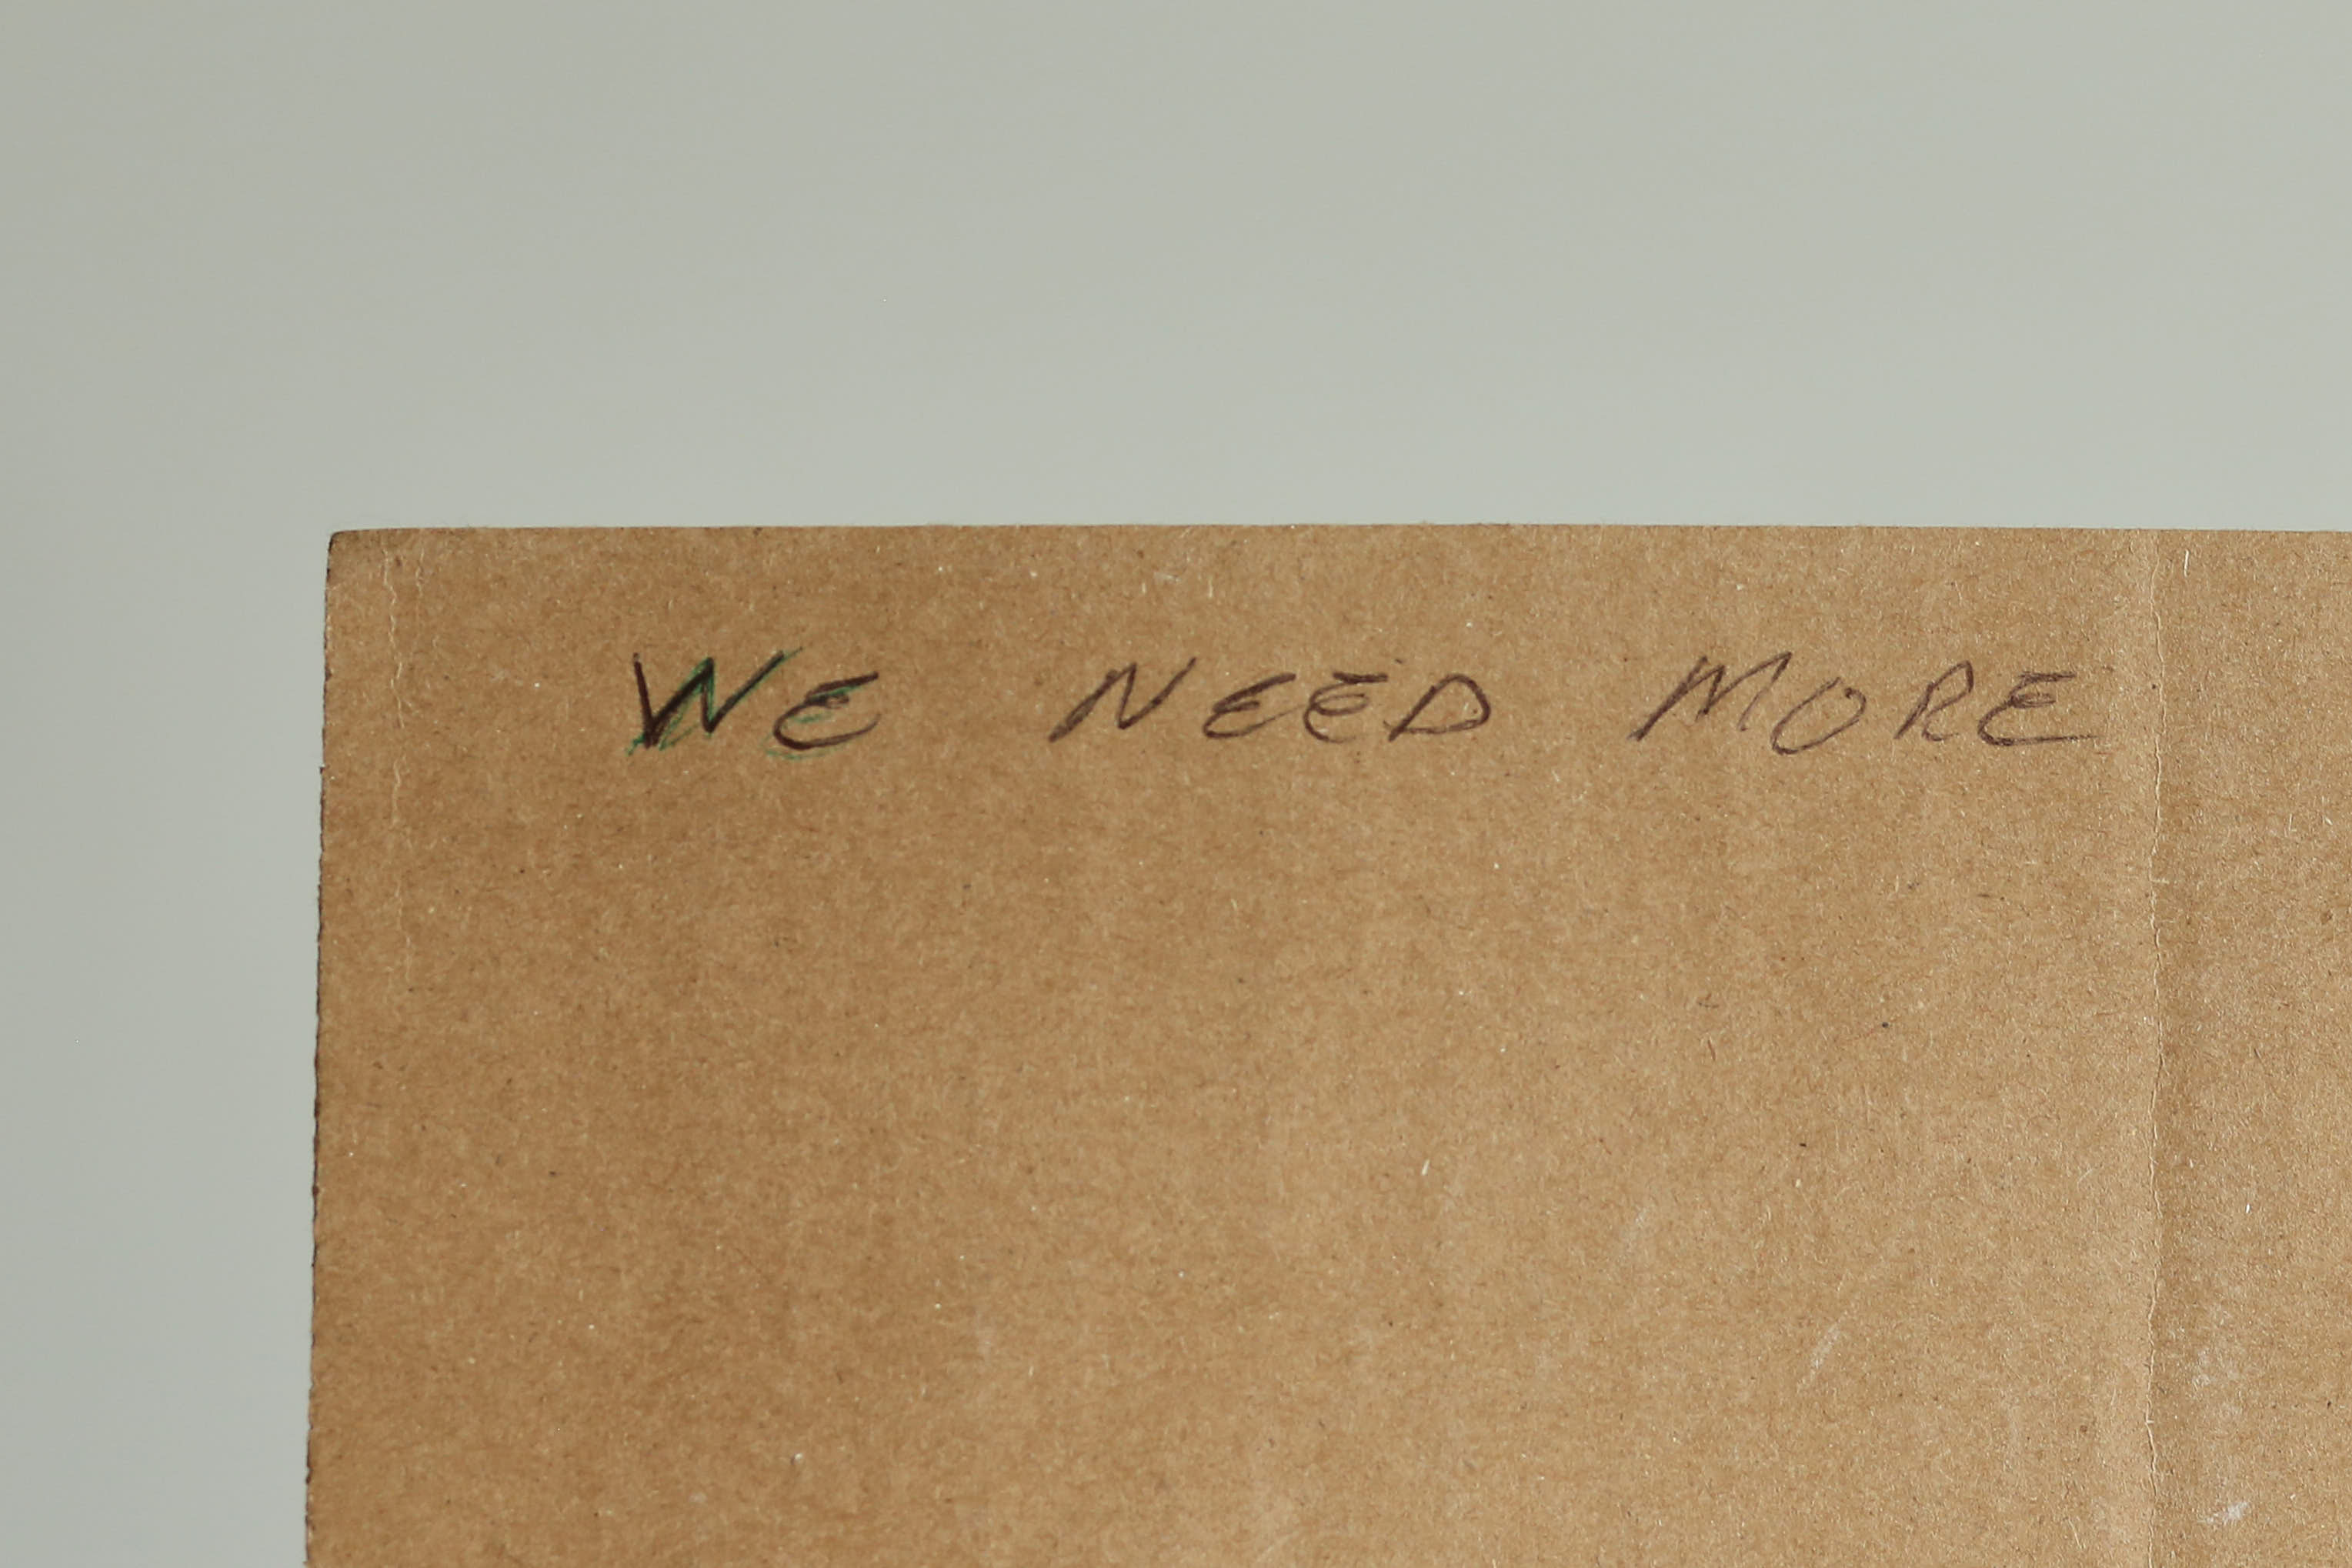 WE NEED MORE